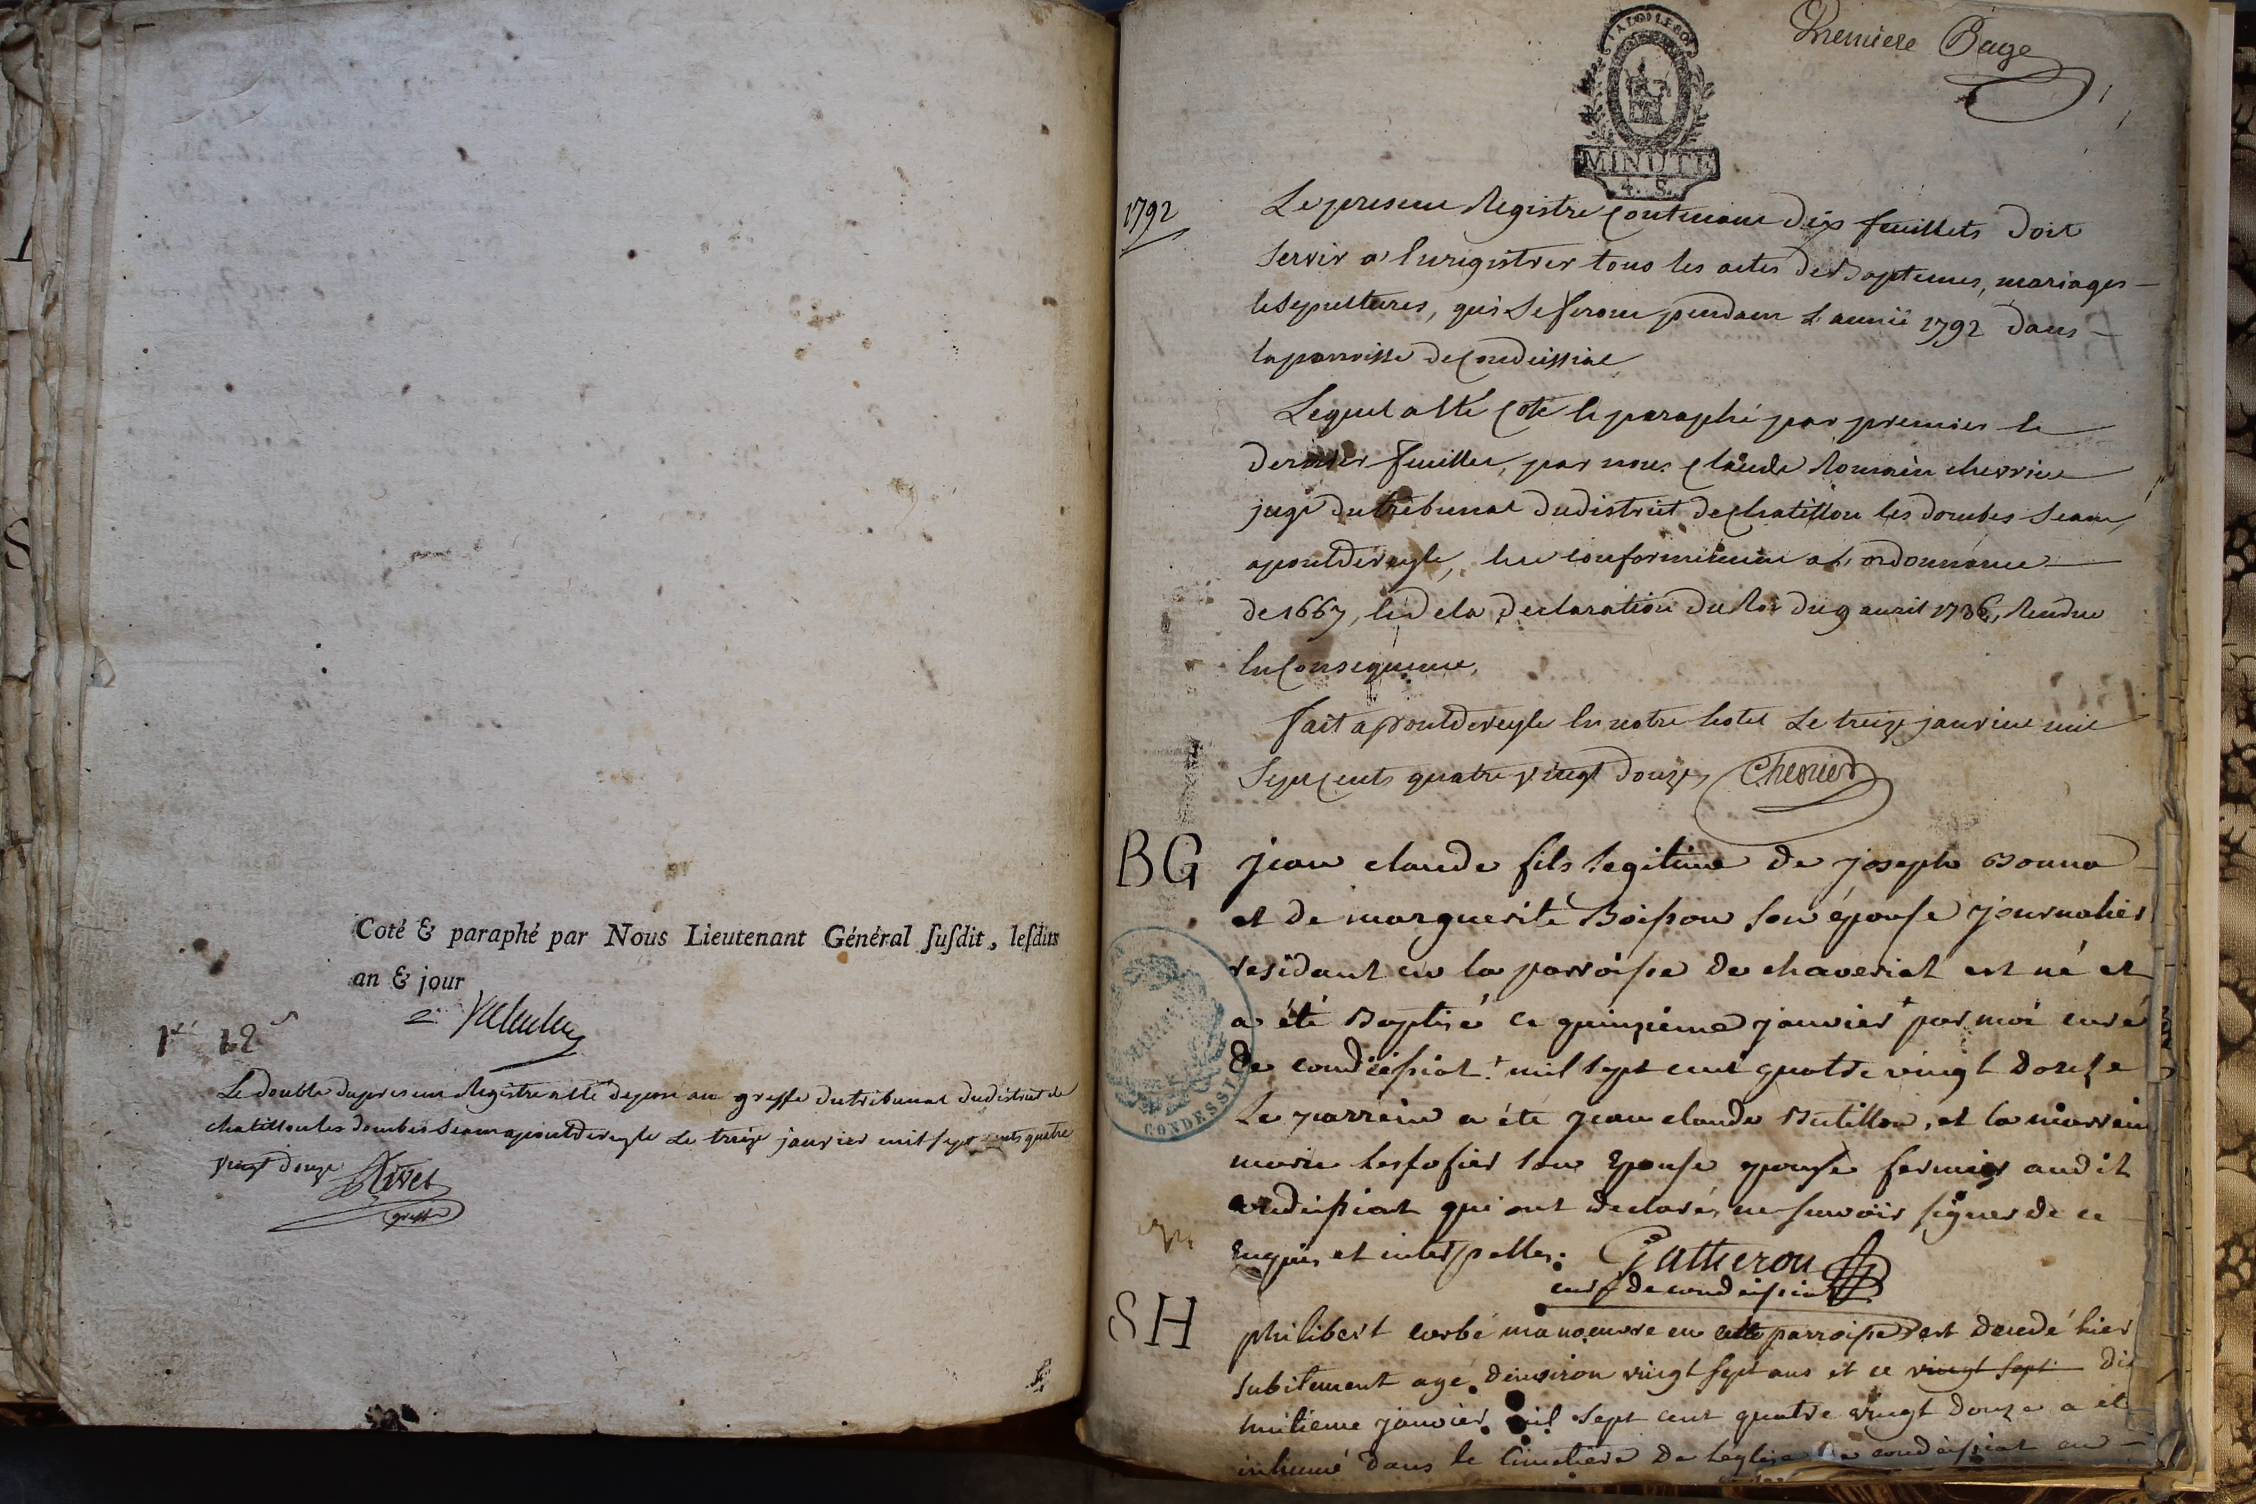 Coté & paraphé par Nous Lieutenant Général ſuſdit, leſdits
an & jour
Le double dupresent Registre a été deposé au greffe dutribunal dudistrict de
chatillon les dombes Seant apontdeveyle Le treize janvier mil sept cents quatre
vingt douze Rivet
greffier
Premiere Page
MINUTE
4. S.
1792
Le present Registre Contenant dix feuillets doit
Servir a Enregistrer tous les actes de Baptemes, mariages
et Sepultures, qui Se feront pendant L'année 1792 dans
la parroisse de Condeissiat
Lequel a été Coté et paraphé par premier et
dernier feuillet, par nous Claude Romain chevrier
juge du tribunal du district de chatillon les dombes Seant
apontdeveyle, en conformement a L'ordonnance
de 1667, et de la Declaration du Roi du 9 avril 1736, Rendue
En Consequence,
fait a pontdeveyle En notre hotel Le treize janvier mil
Sept Cents quatre vingt douze, Chevrier
BG
jean claude fils legitime de joseph Bonna
et de marguerite Boisson son épouse journalier
residant en la parroisse de chaveriat est né et
a été Baptisé ce quinzieme janvier + par moi curé
de condeissiat + mil sept cent quatre vingt douse
Le parrein a été jean claude Butillon, et la marrein
marie son Epouse epouse fermier audit
condeissiat qui ont declaré ne scavoir signer de ce
Enquis et interpelles. Gatheron
curé de condeissiat
CONDESSIAT
SH
philibert corbé manoeuvre en cette parroisse est decedé hier
subitement agé d'environ vingt sept ans et ce vingt sept dix
huitieme janvier mil sept cent quatre vingt douze a eté
inhumé dans le Cimetiere de leglise de condeissiat en